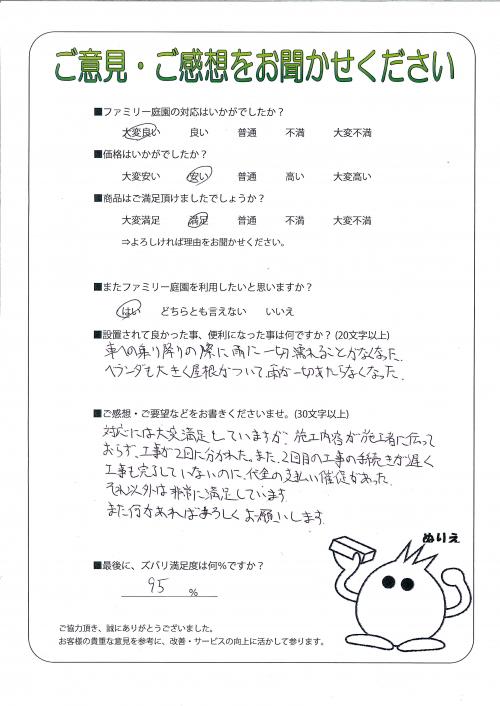 ご意見・ご感想をお聞かせください
■ファミリー庭園の対応はいかがでしたか？
大変良い 良い 普通 不満 大変不満
■価格はいかがでしたか？
大変安い 安い 普通 高い 大変高い
■商品はご満足頂けましたでしょうか？
大変満足 満足 普通 不満 大変不満
⇒よろしければ理由をお聞かせください。
■またファミリー庭園を利用したいと思いますか？
はい どちらとも言えない いいえ
■設置されて良かった事、便利になった事は何ですか？(20文字以上)
車への乗り降りの際に雨に一切濡れることがなくなった。
ベランダも大きく屋根がついて、雨が一切あたらなくなった。
■ご感想・ご要望などをお書きくださいませ。(30文字以上)
対応には大変満足していますが、施工内容が施工者に伝って
おらず、工事が2回に分かれた。また、2回目の工事の手続きが遅く
工事も完了していないのに、代金の支払い催促があった。
それ以外は非常に満足しています。
また何かあればよろしくお願いします。
■最後に、ズバリ満足度は何％ですか？
95 %
ぬりえ
ご協力頂き、誠にありがとうございました。
お客様の貴重な意見を参考に、改善・サービスの向上に活かして参ります。